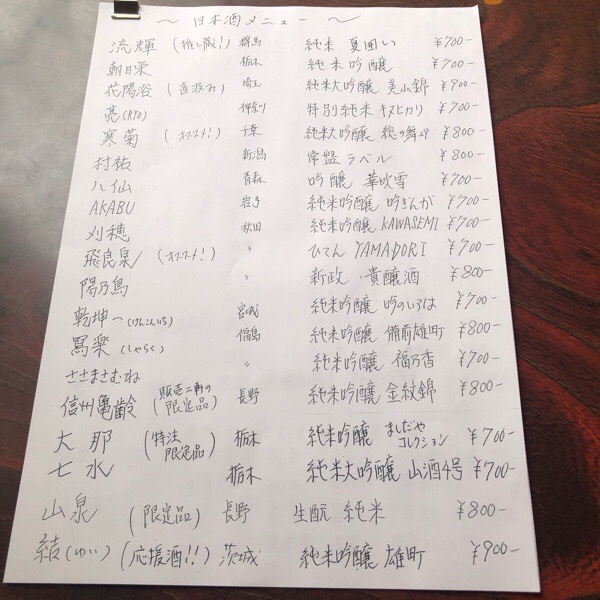 ～ 日本酒メニュー ～
流輝 (推し蔵!!) 群馬 純米 夏囲い ¥700-
朝日栄 栃木 純米吟醸 ¥700-
花陽浴 (直汲み) 埼玉 純米大吟醸 美山錦 ¥900-
亮(RYO) 神奈川 特別純米 キヌヒカリ ¥700-
寒菊 (オススメ!) 千葉 純米大吟醸 総の舞49 ¥800-
村祐 新潟 常盤ラベル ¥800-
八仙 青森 吟醸 華吹雪 ¥700-
AKABU 岩手 純米吟醸 吟ぎんが ¥700-
刈穂 秋田 純米吟醸 KAWASEMI ¥700-
飛良泉 (オススメ!) 〃 ひてん YAMADORI ¥700-
陽乃鳥 〃 新政・貴醸酒 ¥800-
乾坤一(けんこんいち) 宮城 純米吟醸 吟のいろは ¥700-
寫楽(しゃらく) 福島 純米吟醸 備前雄町 ¥800-
ささまさむね 〃 純米吟醸 福乃香 ¥700-
信州亀齢 (販売二軒の限定品) 長野 純米吟醸 金紋錦 ¥800-
大那 (特注限定品) 栃木 純米吟醸 ましだやコレクション ¥700-
七水 栃木 純米大吟醸 山酒4号 ¥700-
山泉 (限定品) 長野 生酛 純米 ¥800-
結(ゆい) (応援酒!!) 茨城 純米吟醸 雄町 ¥900-